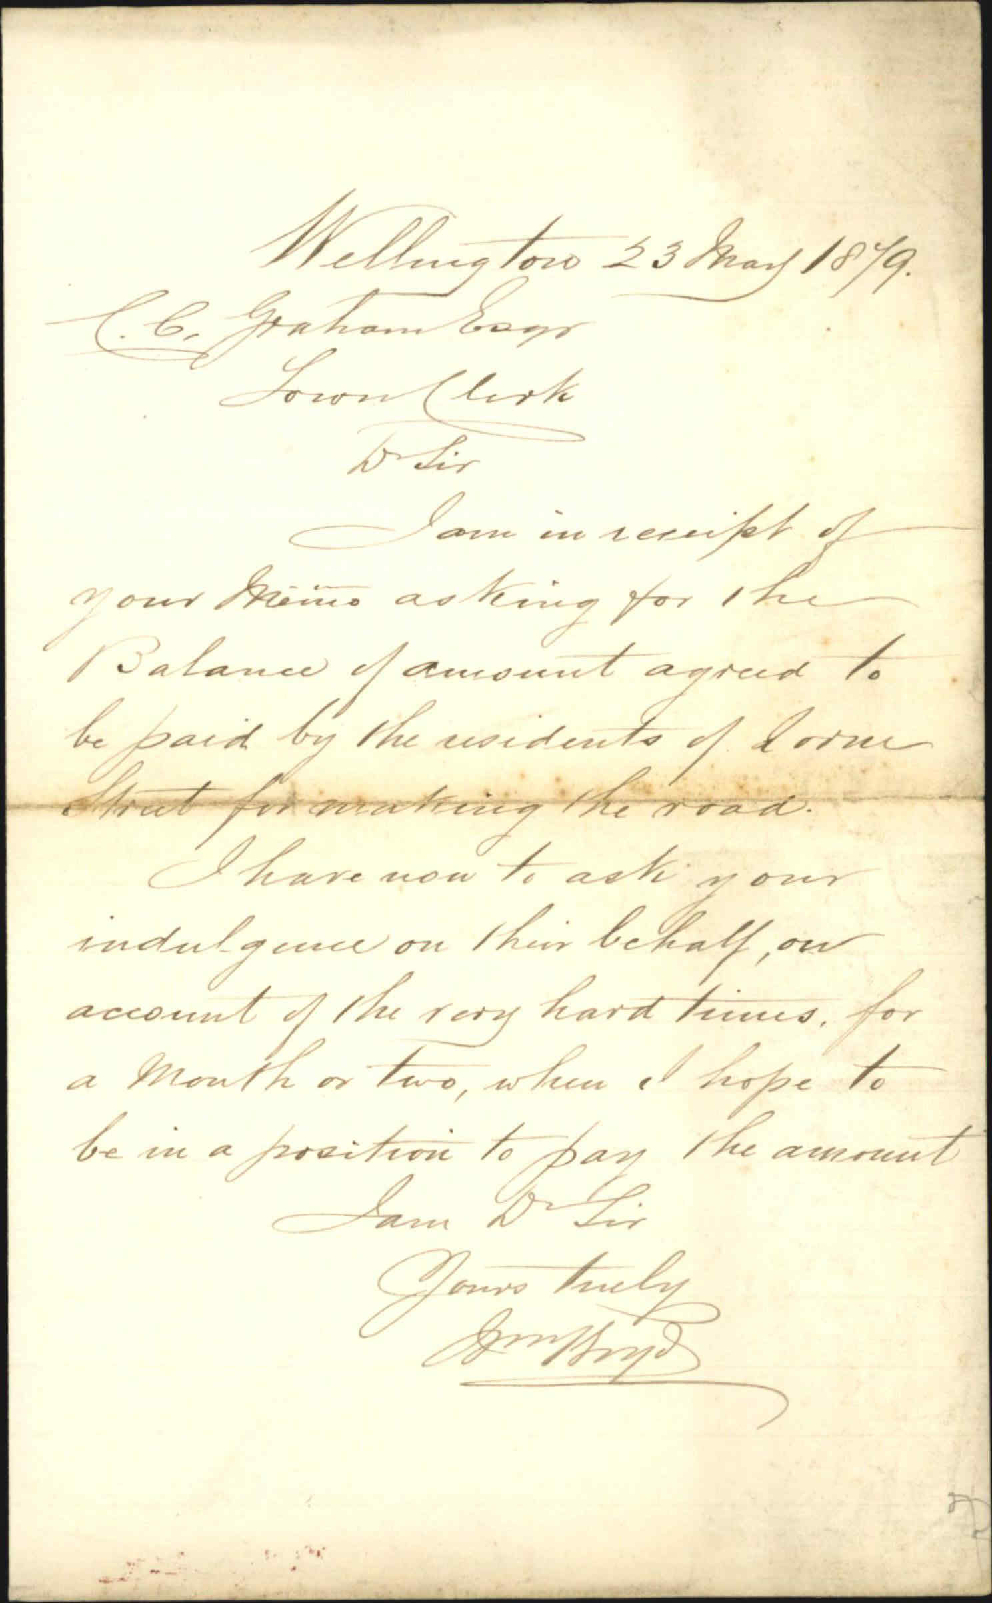 Wellington 23 May 1879.
C. C. Graham Esqr
Town Clerk
Dr Sir
I am in receipt of
your Memo asking for the
Balance of amount agreed to
be paid by the residents of Lorne
Street for making the road.
I have now to ask your
indulgence on their behalf, on
account of the very hard times, for
a Month or two, when I hope to
be in a position to pay the amount
I am Dr Sir
Yours truly
Wm Boyd